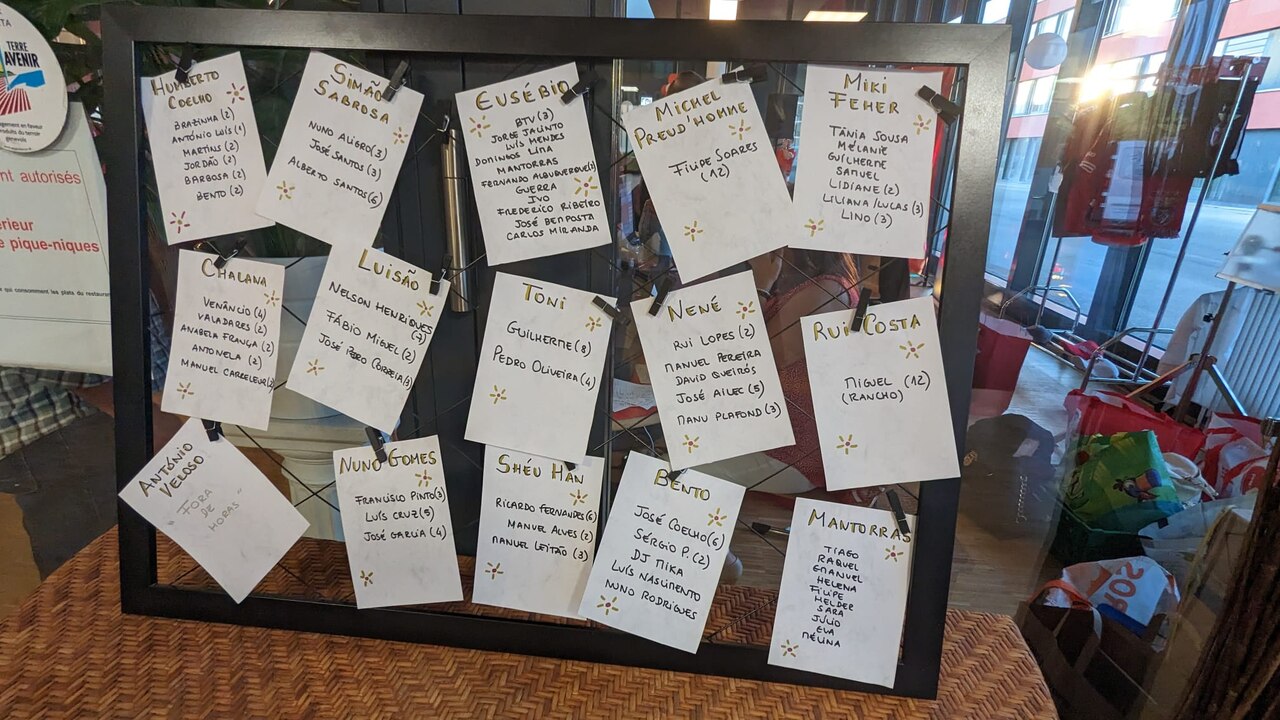 TERRE
AVENIR
nt autorisés
érieur
e pique-niques
HUMBERTO
COELHO
ANTÓNIO LUÍS (1)
MARTINS (2)
JORDÃO (2)
BARBOSA (2)
BENTO (2)
SIMÃO
SABROSA
NUNO ALIGRO (3)
JOSÉ SANTOS (3)
ALBERTO SANTOS (6)
EUSÉBIO
BTV (3)
JORGE JACINTO
LUÍS MENDES
DOMINGOS LIMA
MANTORRAS
FERNANDO ALBUQUERQUE
GUERRA
IVO
FREDERICO RIBEIRO
JOSÉ BENPOSTA
CARLOS MIRANDA
MICHEL
PREUD'HOMME
FILIPE SOARES
(12)
MIKI
FEHER
TÂNIA SOUSA
MÉLANIE
GUILHERME
SAMUEL
LIDIANE (2)
LILIANA/LUCAS (3)
LINO (3)
CHALANA
VENÂNCIO (4)
VALADARES (2)
ANABELA FRANÇA (2)
ANTONELA (2)
MANUEL CARRELEUR
LUISÃO
NELSON HENRIQUES
FÁBIO MIGUEL (2)
JOSÉ PEDRO CORREIA
TONI
GUILHERME (8)
PEDRO OLIVEIRA (4)
NENÉ
RUI LOPES (2)
MANUEL PEREIRA
DAVID QUEIRÓS
JOSÉ AILEC (5)
MANU PLAFOND (3)
RUI COSTA
MIGUEL (12)
(RANCHO)
ANTÓNIO
VELOSO
"FORA
DE
HORAS"
NUNO GOMES
FRANCISCO PINTO (3)
LUÍS CRUZ (5)
JOSÉ GARCIA (4)
SHÉU HAN
RICARDO FERNANDES (6)
MANUEL ALVES (2)
MANUEL LEITÃO (3)
BENTO
JOSÉ COELHO (6)
SÉRGIO P. (2)
DJ MIKA
LUÍS NASCIMENTO
NUNO RODRIGUES
MANTORRAS
TIAGO
RAQUEL
EMANUEL
HELENA
FILIPE
HELDER
SARA
JÚLIO
EVA
MÉLINA